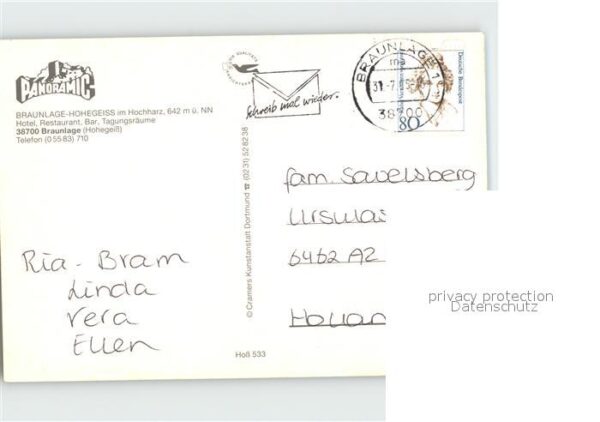 PANORAMIC
BRAUNLAGE-HOHEGEISS im Hochharz, 642 m ü. NN
Hotel, Restaurant, Bar, Tagungsräume
38700 Braunlage (Hohegeiß)
Telefon (0 55 83) 710
Schreib mal wieder.
BRAUNLAGE 1
ma
31.-7.
38700
Deutsche Bundespost
80
© Cramers Kunstanstalt Dortmund ☎ (0231) 52 82 38
fam. Savelsberg
6462 AZ
Ria - Bram
Linda
Vera
Ellen
Hoß 533
privacy protection
Datenschutz